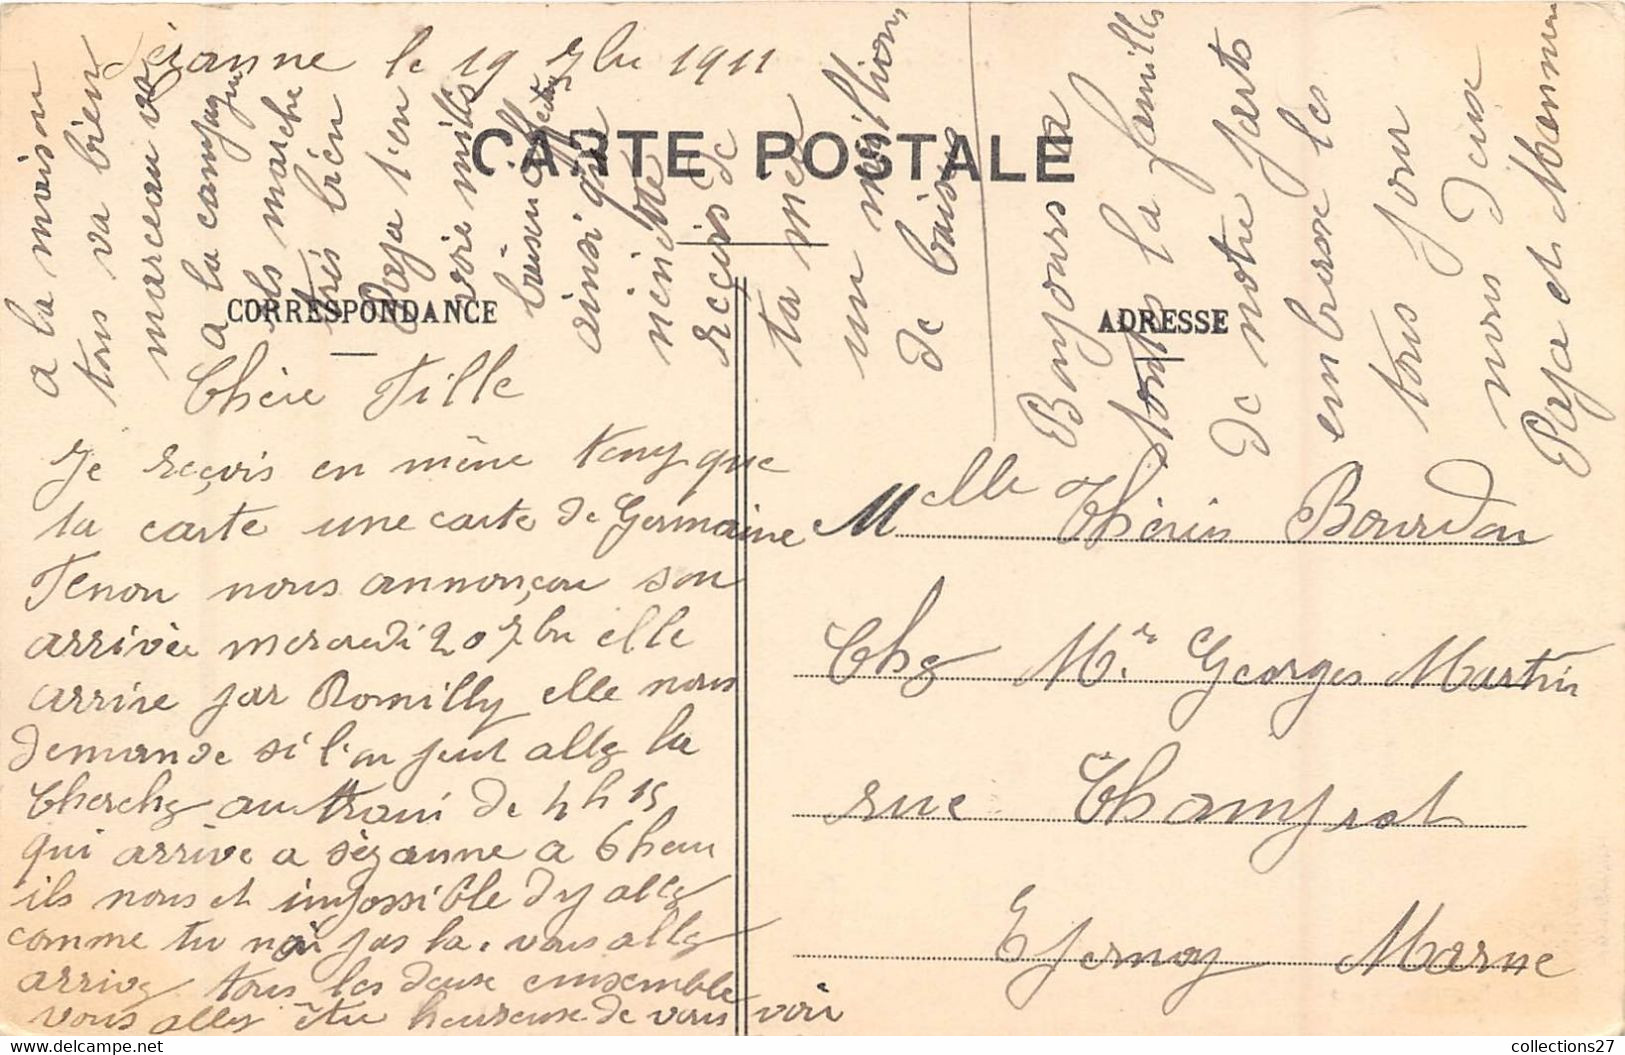 Sézanne le 19 7bre 1911
CARTE POSTALE
CORRESPONDANCE
ADRESSE
Chère Fille
Je reçois en même temp que
ta carte une carte de Germaine
Tenon nous annonçon son
arrivée mercredi 20 7bre elle
arrive par Romilly elle nous
demande si l'on peut allez la
cherchez au train de 4h15
qui arrive a sézanne a 6 heu
ils nous et impossible d'y allez
comme tu n'ai pas la. vous allez
arrivez tous les deuse ensemble
vous allez être heureuse de vous voir
a la maison
tous va bien
marceau va
a la campagne
ils marche
très bien
Papa t'en
voire mills
baisen affectues
ainsi que
nienbte
recois de
ta mer
un millions
de baise
Bonjours a
touts la familles
de notre parts
embrasse les
tous pour
nous deuse
Papa et Manman
Mlle Thérèse Bourdon
Chez Mr. Georges Martin
rue Champrot
Epernay Marne
collections27